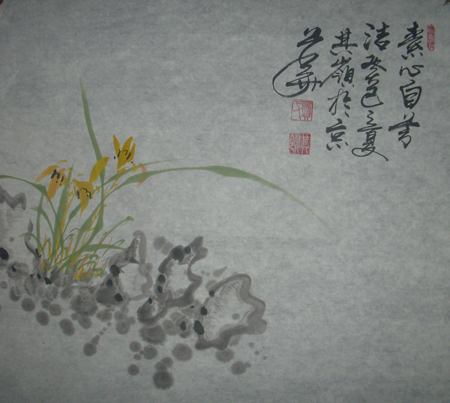 素心自芳
洁癸巳之夏
其嶺於京